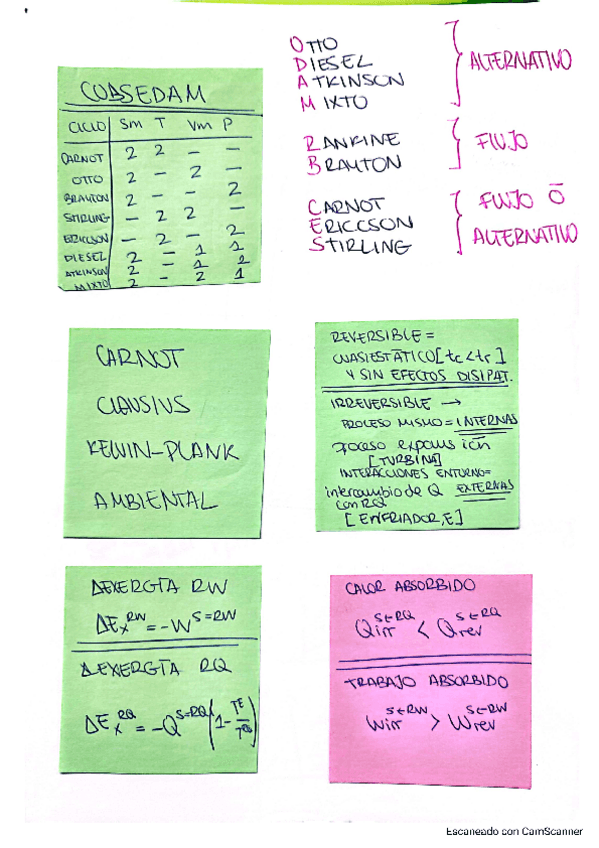 OTTO
DIESEL
ATKINSON
MIXTO
ALTERNATIVO
RANKINE
BRAYTON
FLUJO
CARNOT
ERICCSON
STIRLING
FLUJO Ō
ALTERNATIVO
COBSEDAM
CICLO Sm T Vm P
CARNOT 2 2 – –
OTTO 2 – 2 –
BRAYTON 2 – – 2
STIRLING – 2 2 –
ERICCSON – 2 – 2
DIESEL 2 – 1 1
ATKINSON 2 – 1 2
MIXTO 2 – 2 1
CARNOT
CLAUSIUS
KELVIN-PLANK
AMBIENTAL
REVERSIBLE =
CUASIESTÁTICO [tc<tr]
Y SIN EFECTOS DISIPAT.
IRREVERSIBLE →
PROCESO MISMO = INTERNAS
Proceso expansión
[TURBINA]
INTERACCIONES ENTORNO=
intercambio de Q EXTERNAS
con RQ
[ENFRIADOR, E]
ΔEXERGÍA RW
ΔEx^RW = -W^S=RW
ΔEXERGÍA RQ
ΔEx^RQ = -Q^S=RQ (1 - TE/TRQ)
CALOR ABSORBIDO
Qirr^S←RQ < Qrev^S←RQ
TRABAJO ABSORBIDO
Wirr^S←RW > Wrev^S←RW
Escaneado con CamScanner